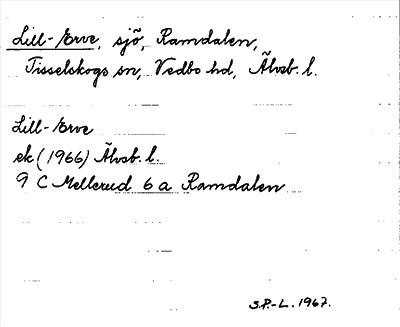 Lill-Erve, sjö, Ramdalen,
Tisselskogs sn, Vedbo hd, Älvsb. l.
Lill-Erve
ek (1966) Älvsb. l.
9 C Mellerud 6 a Ramdalen
S.P.-L. 1967.